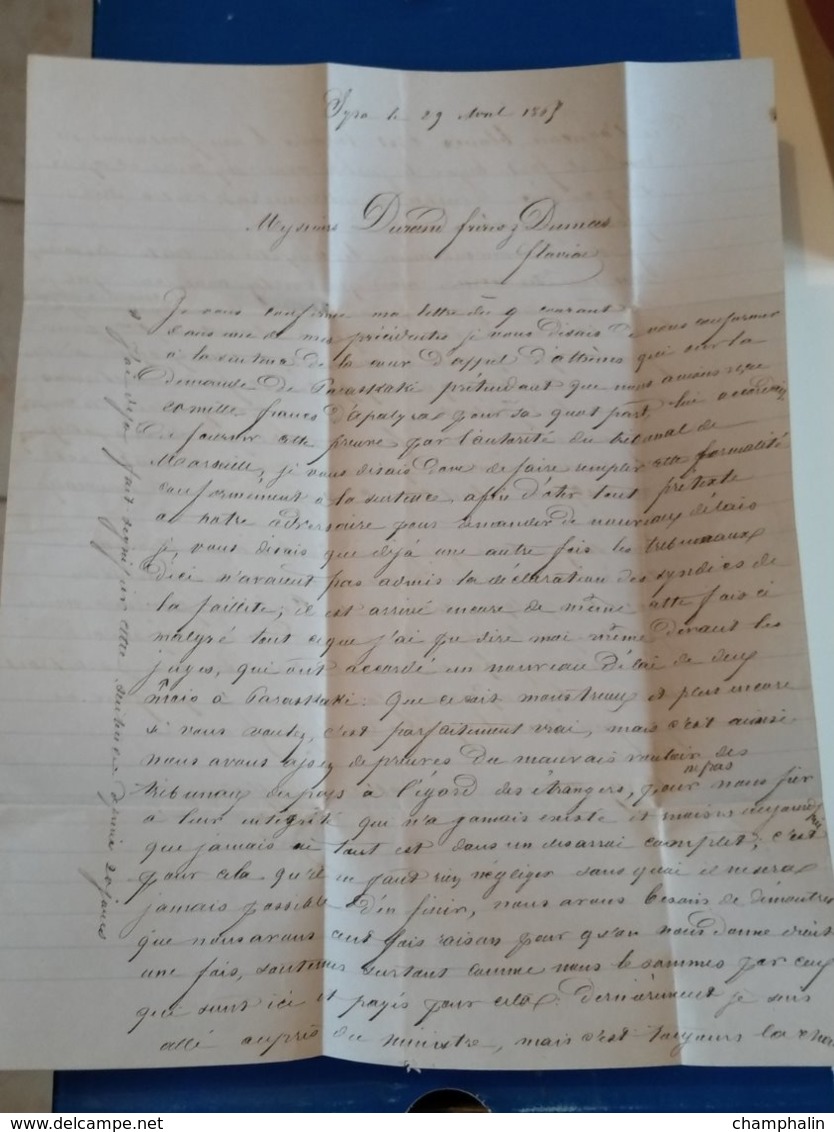 Syra le 29 Avril 1867
Messieurs Durand frères & Dumas
Je vous confirme ma lettre du 9 courant
Dans une de mes précédentes je vous disais de vous conformer
à la sentence de la cour d'appel d'Athènes qui sur la
demande de Paraskaki prétendant que nous avions reçu
mille francs pour sa quot part, lui
de fournir cette preuve par l'autorité du tribunal de
Marseille, je vous disais donc de faire remplir cette formalité
conformément à la sentence, afin d'oter tout prétexte
a notre adversaire pour demander de nouveaux délais
je vous disais que déjà une autre fois les tribunaux
d'ici n'avaient pas admis la déclaration des syndics de
la faillite; il est arrivé encore de même cette fois ci
malgré tout ce que j'ai pu dire moi même devant les
juges, qui ont accordé un nouveau délai de deux
mois à Paraskaki. Que ce soit monstrueux et plus encore
si vous voulez, c'est parfaitement vrai, mais c'est ainsi
nous avons assez de preuves du mauvais vouloir des
tribunaux du pays à l'égard des étrangers, pour ne pas nous fier
à leur intégrité qui n'a jamais existé et moins aujourd'hui
que jamais où tout est dans un désarroi complet; c'est
pour cela qu'il ne faut rien négliger sans quoi il ne sera
jamais possible d'en finir, nous avons besoin de démontrer
que nous avons cent fois raison pour qu'on nous donne droit
une fois, surtout comme nous le sommes par ceux
qui sont ici et payés pour cela. Dernièrement je suis
allé auprès du ministre, mais c'est toujours la
j'ai déjà fait depuis 20 jours
champhalin